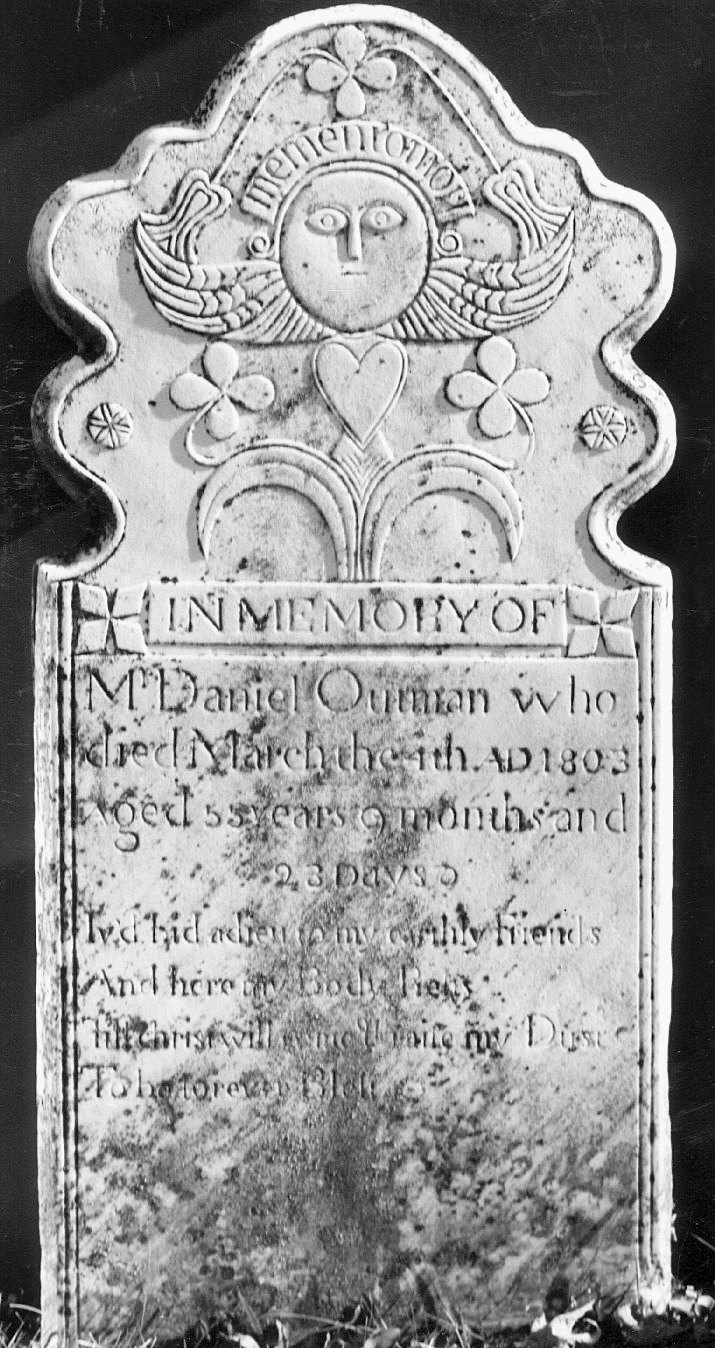 memento mori
IN MEMORY OF
Mr Daniel Outman who
died March the 4th. AD. 1803
Aged 55 years 9 months and
23 Days
I've bid adieu to my earthly friends
And here my Body Rests
till Christ will come & raise my Dust
To be forever Blest